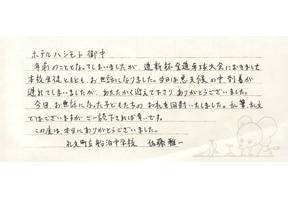 ホテルハシモト御中
年前のこととなってしまいましたが、道新杯全道卓球大会におきまして
本校生徒ともども、お世話になりました。当日は悪天候の中、到着が
遅れてしまいましたが、あたたかく迎えて下さりありがとうございました。
今回、お世話になった子どもたちのお礼を同封いたしました。乱筆、乱文
ではございますが、ご一読下されば幸いです。
この度は、本当にありがとうございました。
礼文町立船泊中学校 佐藤雅一